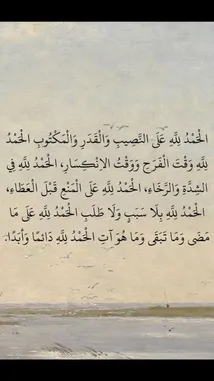 الحَمْدُ لِلَّهِ عَلَى النَّصِيبِ وَالْقَدَرِ وَالْمَكْتُوبِ الحَمْدُ
لِلَّهِ وَقْتَ الْفَرَجِ وَوَقْتُ الاِنْكِسَارِ، الحَمْدُ لِلَّهِ فِي
الشِدَّةِ وَالرَّخَاءِ، الحَمْدُ لِلَّهِ عَلَى الْمَنْعِ قَبْلَ الْعَطَاءِ،
الحَمْدُ لِلَّهِ بِلَا سَبَبٍ وَلَا طَلَبٍ الحَمْدُ لِلَّهِ عَلَى مَا
مَضَى وَمَا تَبَقَى وَمَا هُوَ آتٍ الحَمْدُ لِلَّهِ دَائِمًا وَأَبَدًا.